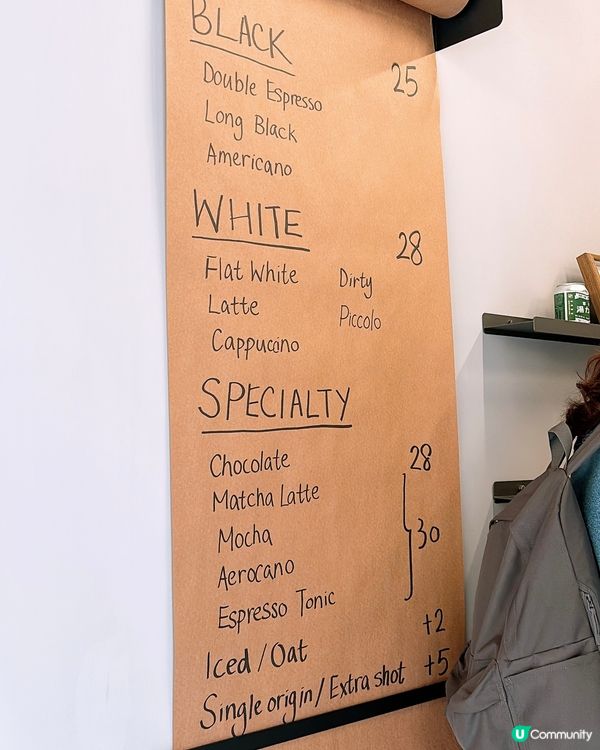 BLACK
Double Espresso 25
Long Black
Americano
WHITE
Flat White Dirty 28
Latte Piccolo
Cappuccino
SPECIALTY
Chocolate 28
Matcha Latte
Mocha 30
Aerocano
Espresso Tonic
Iced / Oat +2
Single origin / Extra shot +5
U Community